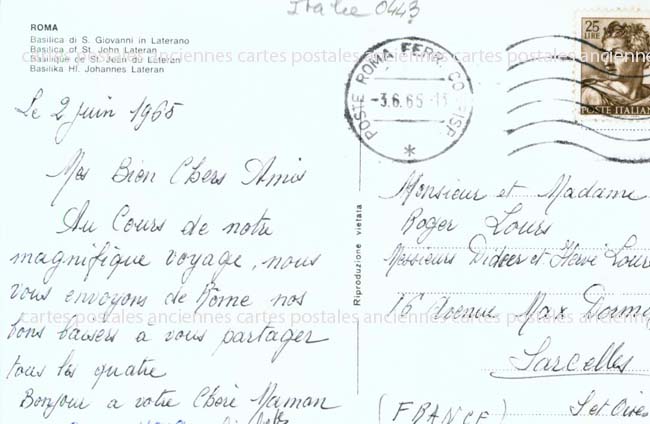 Italie 0443
ROMA
Basilica di S. Giovanni in Laterano
Basilica of St. John Lateran
Basilique de St. Jean du Lateran
Basilika Hl. Johannes Lateran
cartes postales anciennes cartes postales anciennes cartes postales
Le 2 juin 1965
Mes Bien Chers Amis
Au Cours de notre
magnifique voyage, nous
vous envoyons de Rome nos
bons baisers à vous partager
tous les quatre
Bonjour a votre Chère Maman
cartes postales anciennes cartes postales anciennes cartes postales
Riproduzione vietata
POSTE ROMA FERR.
-3.6.65.-13
25
LIRE
POSTE ITALIANE
Monsieur et Madame
Roger Lours
Messieurs Didier et Hervé Lours
16 Avenue Max Dormoy
Sarcelles
(FRANCE) S et Oise